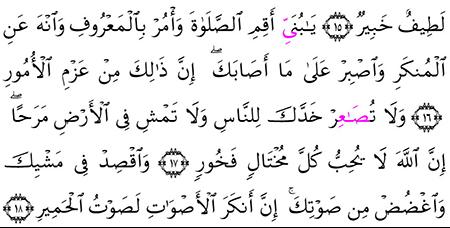 لَطِيفٌ خَبِيرٌ ١٥ يَٰبُنَيِّ أَقِمِ ٱلصَّلَوٰةَ وَأْمُرْ بِٱلْمَعْرُوفِ وَٱنْهَ عَنِ
ٱلْمُنكَرِ وَٱصْبِرْ عَلَىٰ مَا أَصَابَكَۖ إِنَّ ذَٰلِكَ مِنْ عَزْمِ ٱلْأُمُورِ
١٦ وَلَا تُصَٰعِرْ خَدَّكَ لِلنَّاسِ وَلَا تَمْشِ فِى ٱلْأَرْضِ مَرَحًاۖ
إِنَّ ٱللَّهَ لَا يُحِبُّ كُلَّ مُخْتَالٍ فَخُورٍ ١٧ وَٱقْصِدْ فِى مَشْيِكَ
وَٱغْضُضْ مِن صَوْتِكَۚ إِنَّ أَنكَرَ ٱلْأَصْوَٰتِ لَصَوْتُ ٱلْحَمِيرِ ١٨